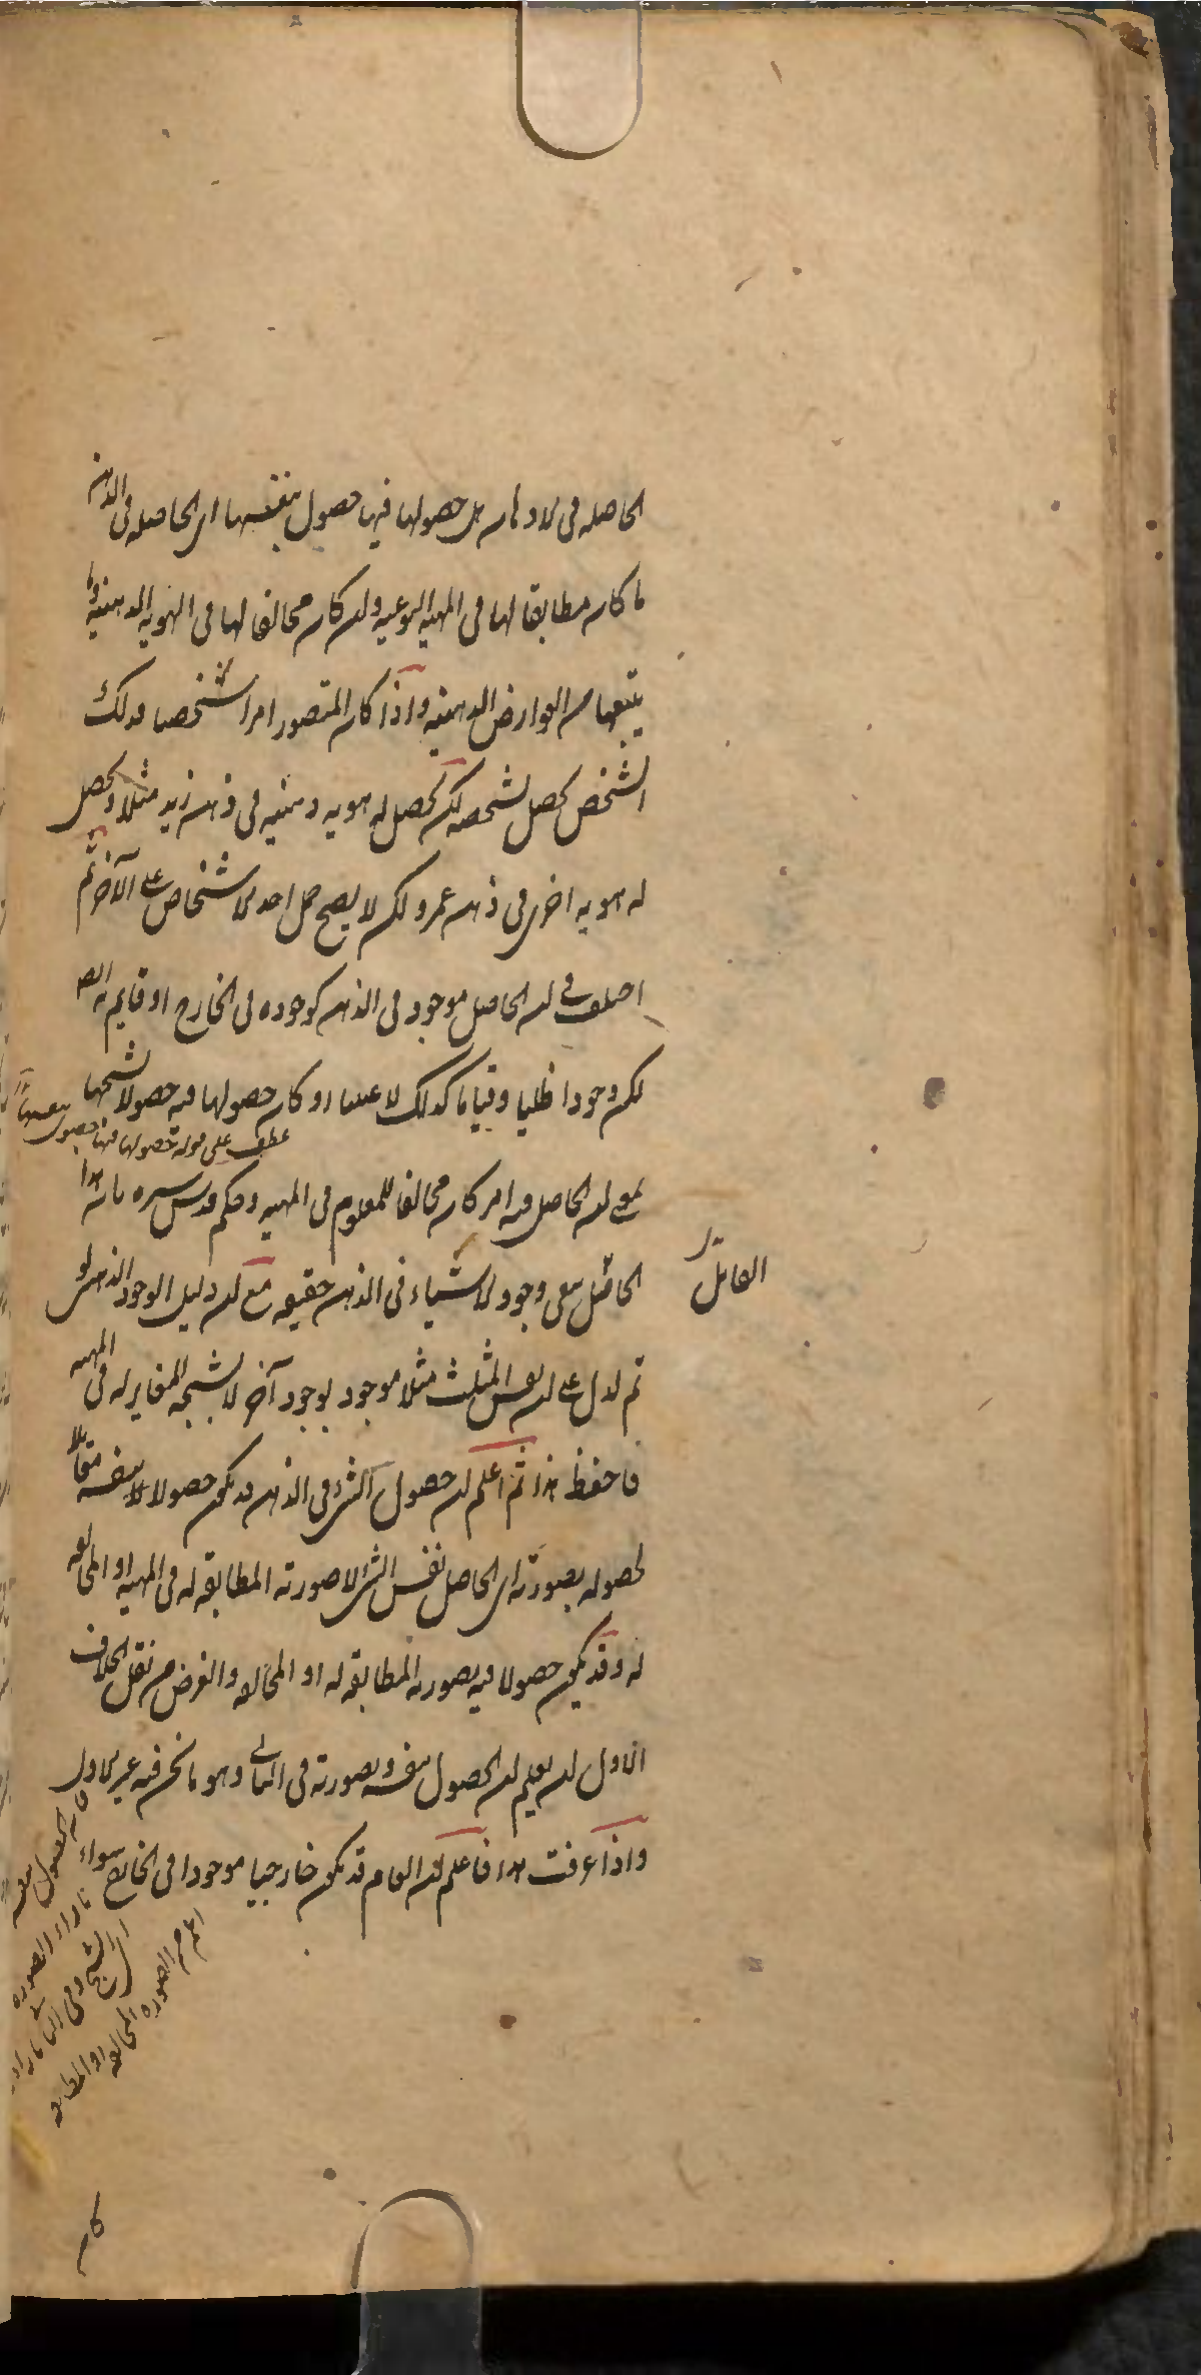 الحاصله فى الاذهان هل حصولها فيها حصول بنفسها اى الحاصله فى الذهن
ما كان مطابقا لها فى المهيه النوعيه وان كان مخالفا لها فى الهويه الذهنيه وما
يتبعها من العوارض الذهنيه واذا كان المتصور امرا شخصيا فذلك
الشخص يحصل بشخصه لكن يحصل له هويه ذهنيه فى ذهن زيد مثلا ويحصل
له هويه اخرى فى ذهن عمرو لكن لا يصح حمل احد الاشخاص على الآخر ثم
اختلف فى ان الحاصل موجود فى الذهن كوجوده فى الخارج او قايم به
لكن وجودا ظليا وقياما كذلك لا عينيا او كان حصولها فيه حصولا لشبحها
عطف على قوله حصولها فيها حصول بنفسها
بمعنى ان الحاصل فيه امر كان مخالفا للمعلوم فى المهيه وحكم قدس سره بان هذا
القائل
الحاصل نفى وجود الاشياء فى الذهن حقيقه مع ان دليل الوجود الذهنى لو
تم لدل على ان نفس المثلث مثلا موجود بوجود آخر لا شبحه المغاير له فى المهيه
فاحفظ هذا ثم اعلم ان حصول الشئ فى الذهن قد يكون حصولا لا بنفسه مقابلا
لحصوله بصورته اى الحاصل نفس الشئ لا صورته المطابقه له فى المهيه او المخالفه
له وقد يكون حصولا فيه بصورته المطابقه له او المخالفه والغرض من نقل الخلاف
الاول ان يعلم ان الحصول بنفسه وبصورته فى الثانى وهو ما نحن فيه غير الاول
واذا عرفت هذا فاعلم ان العام قد يكون خارجيا موجودا فى الخارج سواء
فان الحصول بنفسه
بازاء الصوره
اى الشبح وفى الثانى بازاء
اعم من الصوره المخالفه او المطابقه
كان